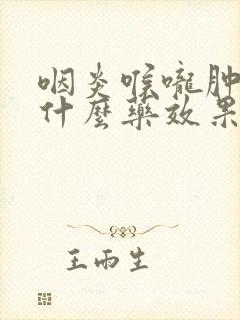 咽炎喉嚨肿
什麼藥效果
王雨生